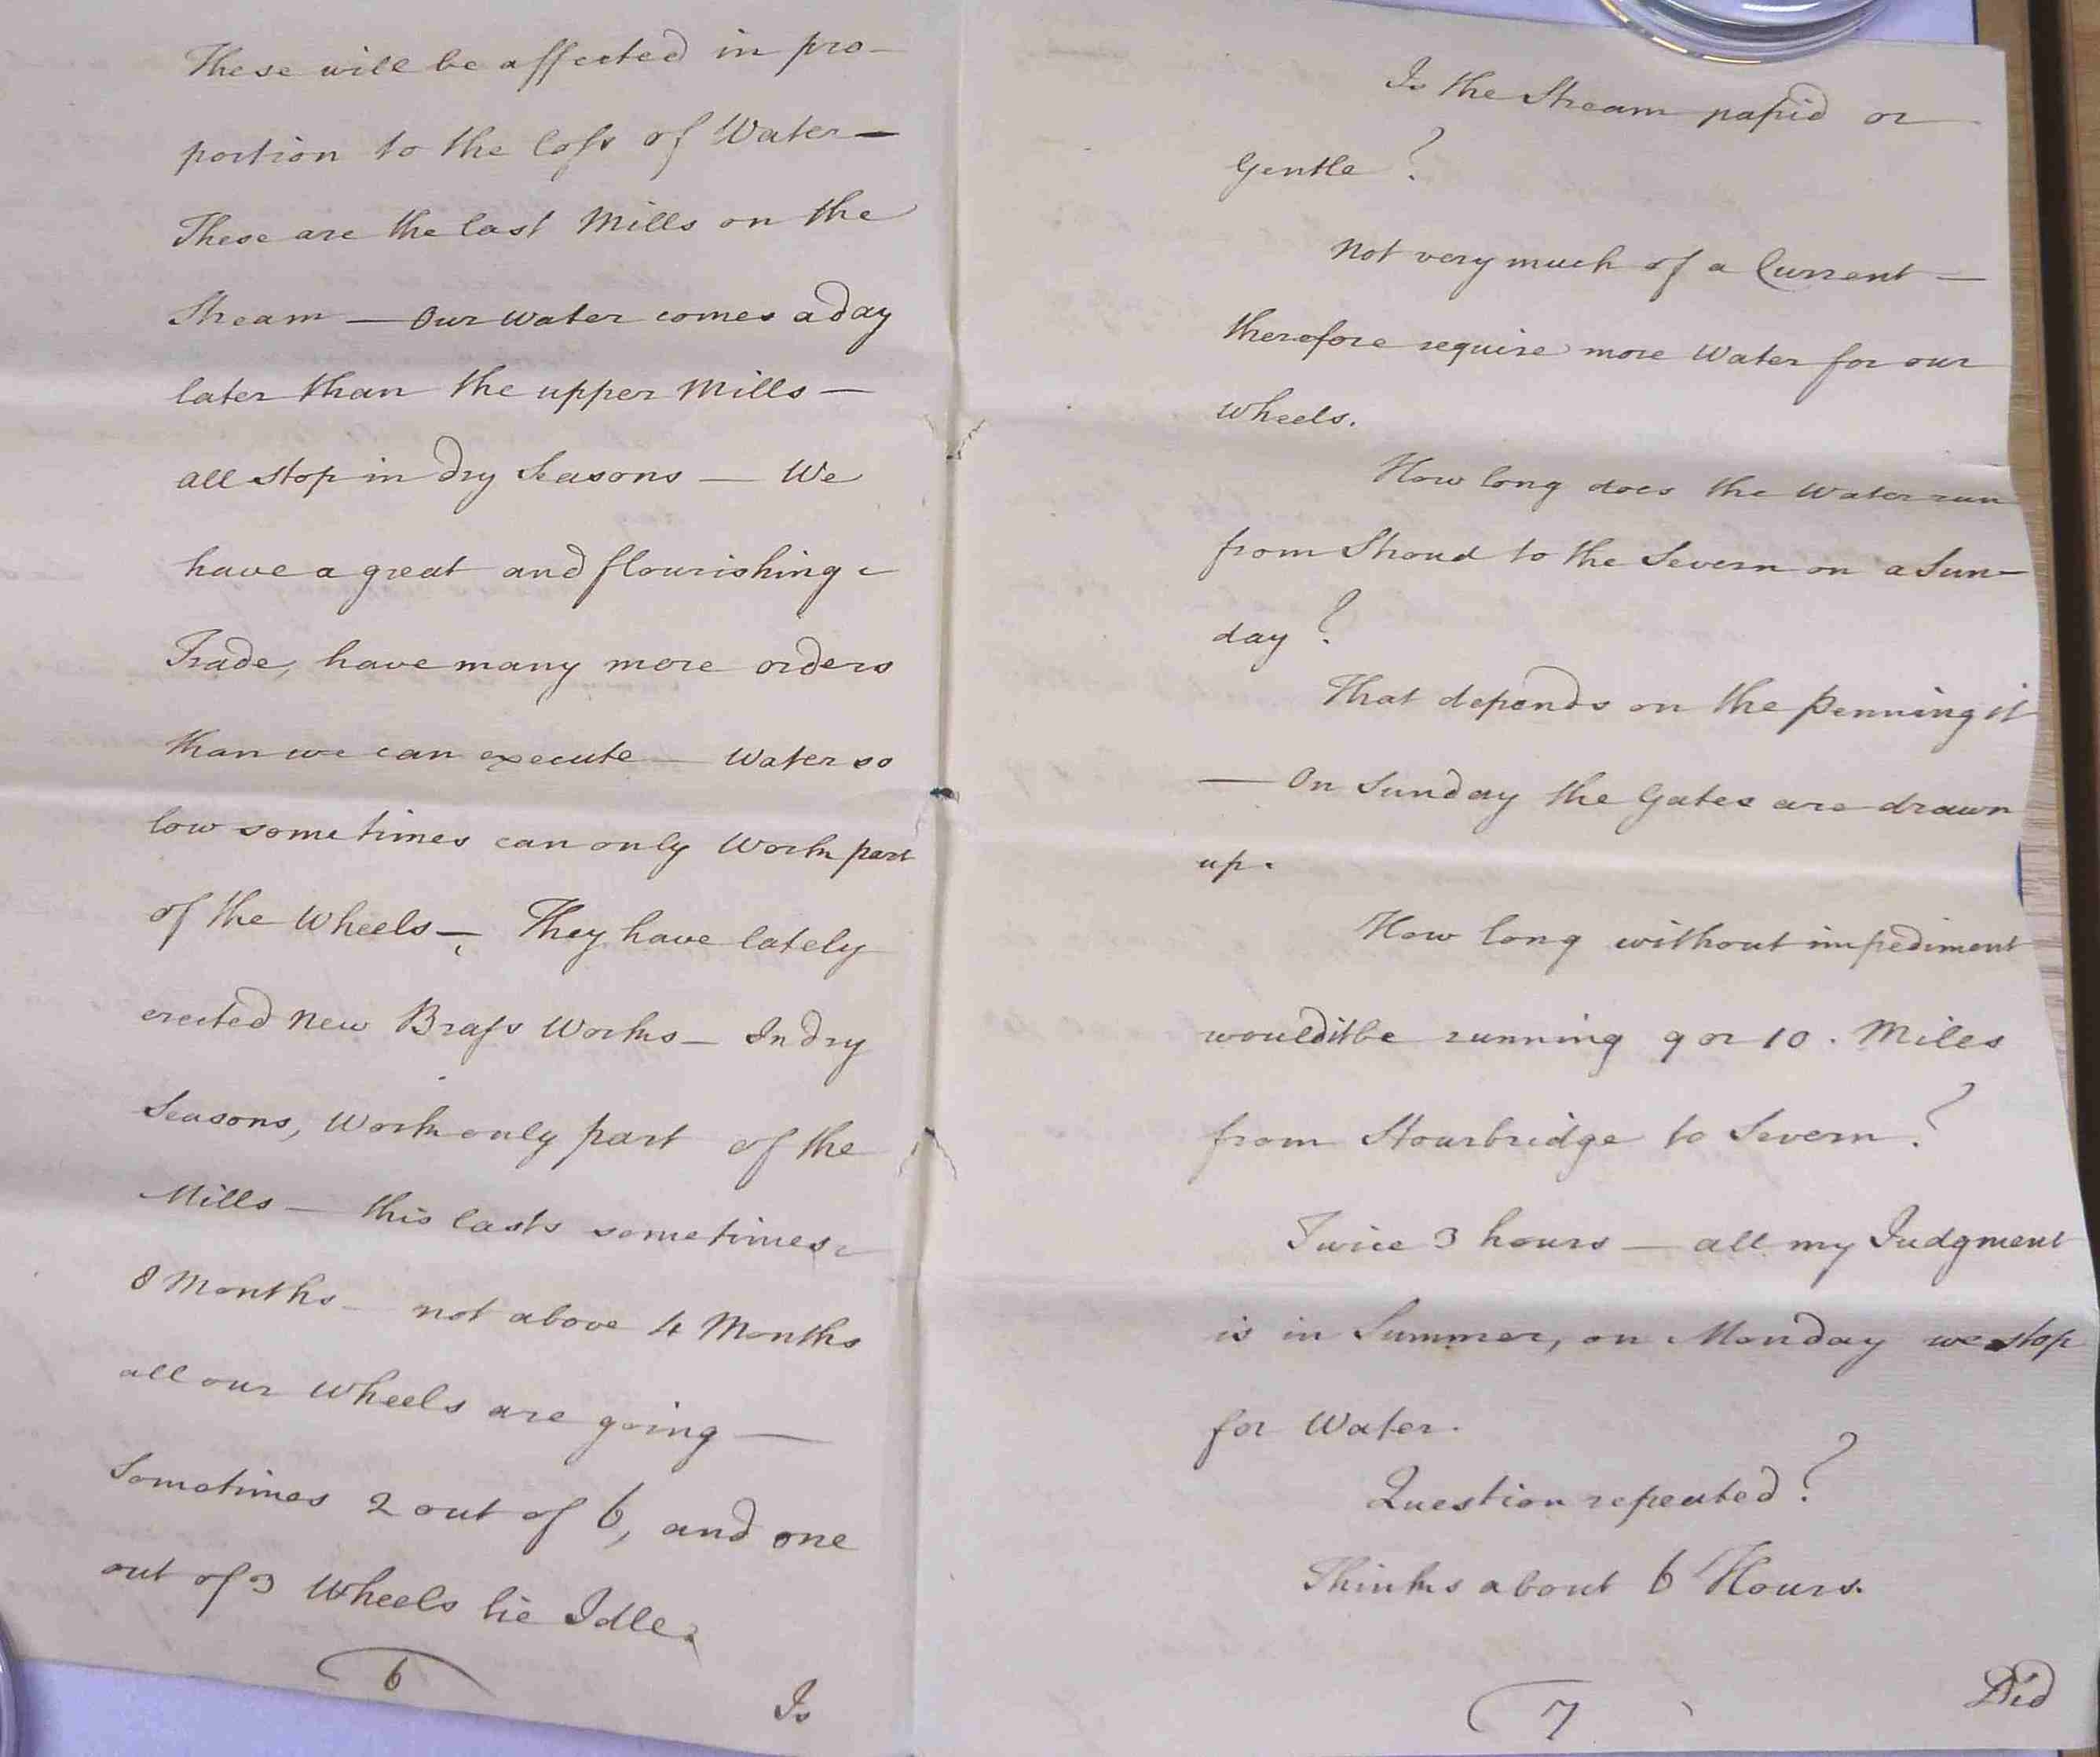 These will be affected in pro-
portion to the Loss of Water —
These are the last Mills on the
Stream — Our Water comes a day
later than the upper Mills —
all stop in dry Seasons — We
have a great and flourishing
Trade, have many more orders
than we can execute — Water so
low sometimes can only Work part
of the Wheels — They have lately
erected New Brass Works — In dry
Seasons, Work only part of the
Mills — this lasts sometimes
8 Months — not above 4 Months
all our Wheels are going —
Sometimes 2 out of 6, and one
out of 3 Wheels lie Idle.
6
Is
Is the Stream rapid or
Gentle?
Not very much of a Current —
therefore require more Water for our
Wheels.
How long does the Water run
from Stroud to the Severn on a Sun-
day?
That depends on the Penning it
— On Sunday the Gates are drawn
up.
How long without impediment
would it be running 9 or 10. Miles
from Stourbridge to Severn?
Twice 3 hours — all my Judgment
is in Summer, on Monday we stop
for Water.
Question repeated?
Thinks about 6 Hours.
7
Did